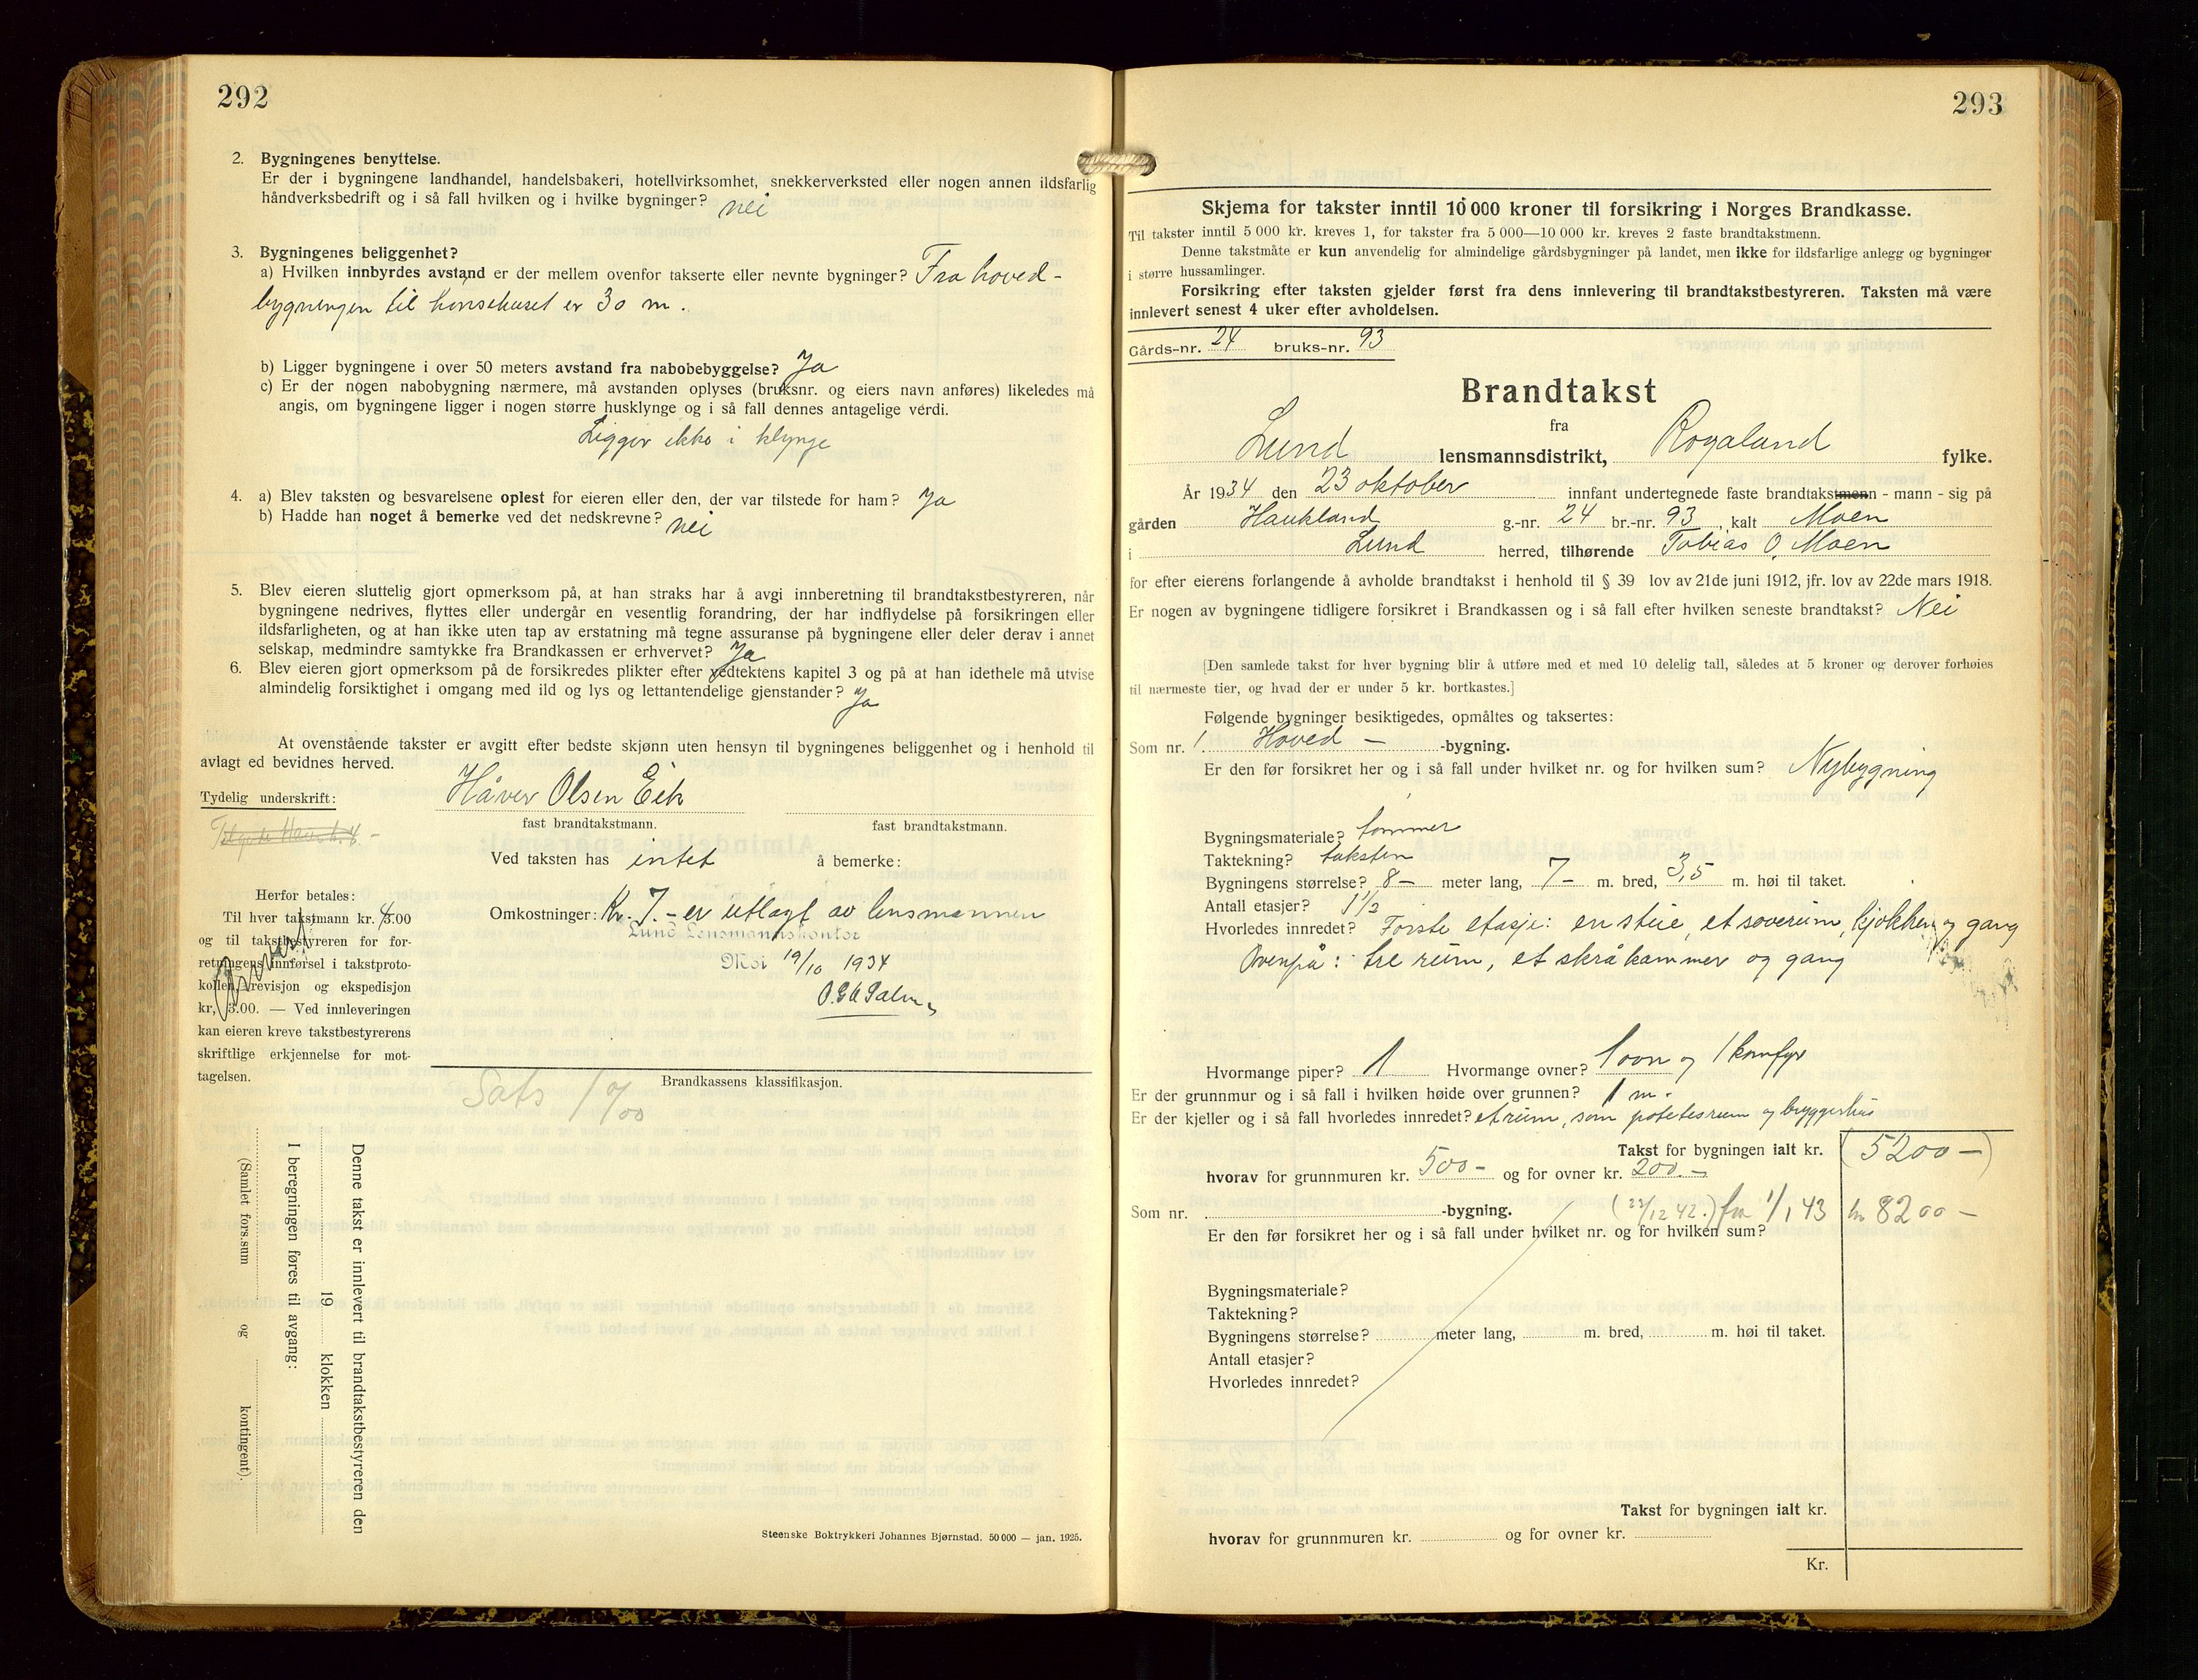 292
2. Bygningenes benyttelse.
Er der i bygningene landhandel, handelsbakeri, hotellvirksomhet, snekkerverksted eller nogen annen ildsfarlig
håndverksbedrift og i så fall hvilken og i hvilke bygninger? nei
3. Bygningenes beliggenhet?
a) Hvilken innbyrdes avstand er der mellem ovenfor takserte eller nevnte bygninger? Fra hoved-
bygningen til hønsehuset er 30 m.
b) Ligger bygningene i over 50 meters avstand fra nabobebyggelse? Ja
c) Er der nogen nabobygning nærmere, må avstanden oplyses (bruksnr. og eiers navn anføres) likeledes må
angis, om bygningene ligger i nogen større husklynge og i så fall dennes antagelige verdi.
Ligger ikke i klynge
4. a) Blev taksten og besvarelsene oplest for eieren eller den, der var tilstede for ham? Ja
b) Hadde han noget å bemerke ved det nedskrevne? nei
5. Blev eieren sluttelig gjort opmerksom på, at han straks har å avgi innberetning til brandtakstbestyreren, når
bygningene nedrives, flyttes eller undergår en vesentlig forandring, der har indflydelse på forsikringen eller
ildsfarligheten, og at han ikke uten tap av erstatning må tegne assuranse på bygningene eller deler derav i annet
selskap, medmindre samtykke fra Brandkassen er erhvervet? Ja
6. Blev eieren gjort opmerksom på de forsikredes plikter efter vedtektens kapitel 3 og på at han idethele må utvise
almindelig forsiktighet i omgang med ild og lys og lettantendelige gjenstander? Ja
At ovenstående takster er avgitt efter bedste skjønn uten hensyn til bygningenes beliggenhet og i henhold til
avlagt ed bevidnes herved.
Tydelig underskrift: Håver Olsen Eik
fast brandtakstmann. fast brandtakstmann.
Ved taksten has intet å bemerke:
Herfor betales:
Til hver takstmann kr. 4.00
og til takstbestyreren for for-
retningens innførsel i takstproto-
kollen, revisjon og ekspedisjon
kr, 3.00. — Ved innleveringen
kan eieren kreve takstbestyrerens
skriftlige erkjennelse for mot-
tagelsen.
Omkostninger: Kr. 7.- er utlagt av lensmannen
Lund Lensmannskontor
Moi 19/10 1934
Brandkassens klassifikasjon.
Sats 1 0/00
Denne takst er innlevert til brandtakstbestyreren den
19 klokken
I beregningen føres til avgang:
(Samlet fors.sum og kontingent).
Steenske Boktrykkeri Johannes Bjørnstad. 50 000 — jan. 1925.
293
Skjema for takster inntil 10 000 kroner til forsikring i Norges Brandkasse.
Til takster inntil 5 000 kr. kreves 1, for takster fra 5 000—10 000 kr. kreves 2 faste brandtakstmenn.
Denne takstmåte er kun anvendelig for almindelige gårdsbygninger på landet, men ikke for ildsfarlige anlegg og bygninger
i større hussamlinger.
Forsikring efter taksten gjelder først fra dens innlevering til brandtakstbestyreren. Taksten må være
innlevert senest 4 uker efter avholdelsen.
Gårds-nr. 24 bruks-nr. 93
Brandtakst
fra
Lund lensmannsdistrikt, Rogaland fylke.
År 1934 den 23 oktober innfant undertegnede faste brandtakstmenn - mann - sig på
gården Haukland g.-nr. 24 br.-nr. 93, kalt Moen
i Lund herred, tilhørende Tobias O. Moen
for efter eierens forlangende å avholde brandtakst i henhold til § 39 lov av 21de juni 1912, jfr. lov av 22de mars 1918.
Er nogen av bygningene tidligere forsikret i Brandkassen og i så fall efter hvilken seneste brandtakst? Nei
[Den samlede takst for hver bygning blir å utføre med et med 10 delelig tall, således at 5 kroner og derover forhøies
til nærmeste tier, og hvad der er under 5 kr. bortkastes.]
Følgende bygninger besiktigedes, opmåltes og taksertes:
Som nr. 1 Hoved — -bygning.
Er den før forsikret her og i så fall under hvilket nr. og for hvilken sum? Nybygning
Bygningsmateriale? tømmer
Taktekning? taksten
Bygningens størrelse? 8- meter lang, 7- m. bred, 3,5 m. høi til taket.
Antall etasjer? 1 1/2
Hvorledes innredet? Første etasje: en stue, et soverum, kjøkken og gang
Ovenpå: tre rum, et skråkammer og gang
Hvormange piper? 1 Hvormange ovner? 1 ovn og 1 komfyr
Er der grunnmur og i så fall i hvilken høide over grunnen? 1 m.
Er der kjeller og i så fall hvorledes innredet? et rum, som potetesrum og bryggerhus
Takst for bygningen ialt kr. (5200 —)
hvorav for grunnmuren kr. 500- og for ovner kr. 200.-
Som nr. -bygning. (22/12 42.) fra 1/1 43 kr 8200 —
Er den før forsikret her og i så fall under hvilket nr. og for hvilken sum?
Bygningsmateriale?
Taktekning?
Bygningens størrelse? meter lang, m. bred, m. høi til taket.
Antall etasjer?
Hvorledes innredet?
Takst for bygningen ialt kr.
hvorav for grunnmuren kr. og for ovner kr.
Kr.